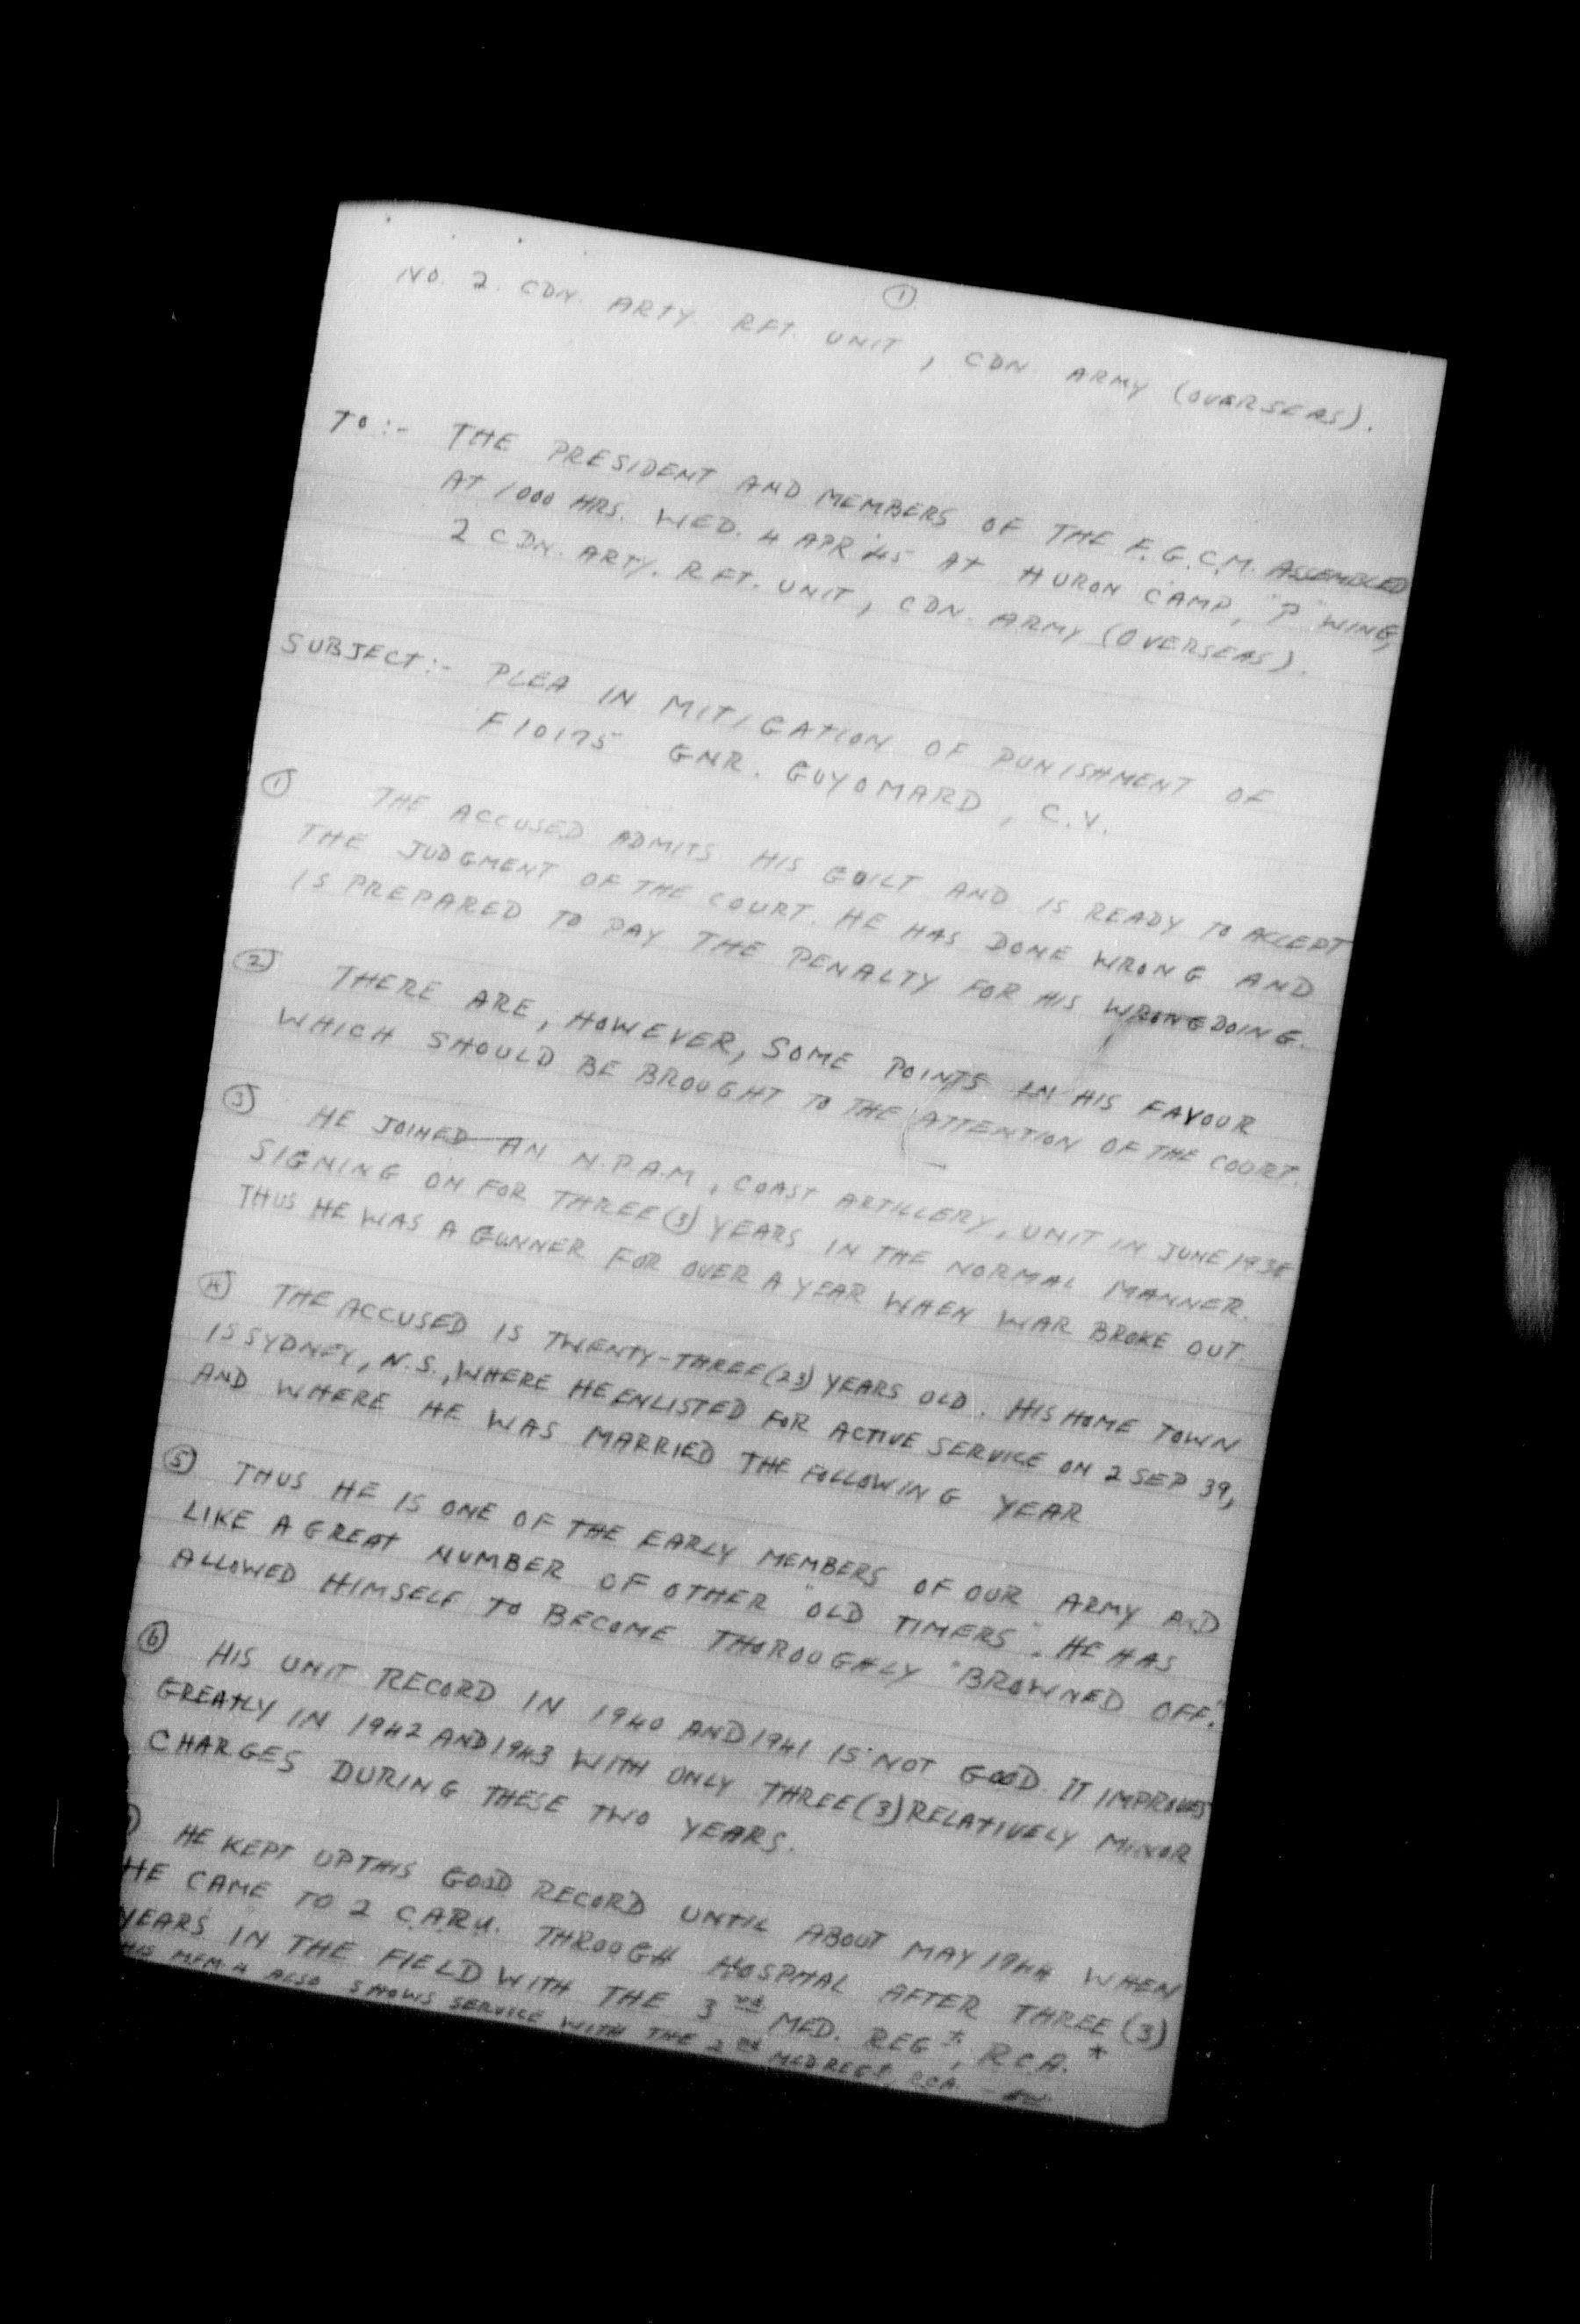 ①
NO. 2. CDN. ARTY. RFT. UNIT, CDN. ARMY (OVERSEAS).
TO:- THE PRESIDENT AND MEMBERS OF THE F.G.C.M. ASSEMBLED
AT 1000 HRS. WED. 4 APR 45 AT HURON CAMP, "P" WING,
2 CDN. ARTY. RFT. UNIT, CDN. ARMY (OVERSEAS).
SUBJECT:- PLEA IN MITIGATION OF PUNISHMENT OF
F10175 GNR. GUYOMARD, C.V.
① THE ACCUSED ADMITS HIS GUILT AND IS READY TO ACCEPT
THE JUDGMENT OF THE COURT. HE HAS DONE WRONG AND
IS PREPARED TO PAY THE PENALTY FOR HIS WRONGDOING.
② THERE ARE, HOWEVER, SOME POINTS IN HIS FAVOUR
WHICH SHOULD BE BROUGHT TO THE ATTENTION OF THE COURT.
③ HE JOINED AN N.P.A.M., COAST ARTILLERY, UNIT IN JUNE 1938
SIGNING ON FOR THREE (3) YEARS IN THE NORMAL MANNER.
THUS HE WAS A GUNNER FOR OVER A YEAR WHEN WAR BROKE OUT.
④ THE ACCUSED IS TWENTY-THREE (23) YEARS OLD. HIS HOME TOWN
IS SYDNEY, N.S., WHERE HE ENLISTED FOR ACTIVE SERVICE ON 2 SEP 39,
AND WHERE HE WAS MARRIED THE FOLLOWING YEAR
⑤ THUS HE IS ONE OF THE EARLY MEMBERS OF OUR ARMY AND
LIKE A GREAT NUMBER OF OTHER "OLD TIMERS". HE HAS
ALLOWED HIMSELF TO BECOME THOROUGHLY "BROWNED OFF."
⑥ HIS UNIT RECORD IN 1940 AND 1941 IS NOT GOOD. IT IMPROVES
GREATLY IN 1942 AND 1943 WITH ONLY THREE (3) RELATIVELY MINOR
CHARGES DURING THESE TWO YEARS.
HE KEPT UP THIS GOOD RECORD UNTIL ABOUT MAY 1944 WHEN
HE CAME TO 2 C.A.R.U. THROUGH HOSPITAL AFTER THREE (3)
YEARS IN THE FIELD WITH THE 3RD MED. REGT, RCA. *
HIS MFM.4 ALSO SHOWS SERVICE WITH THE 2ND MED REGT, RCA.